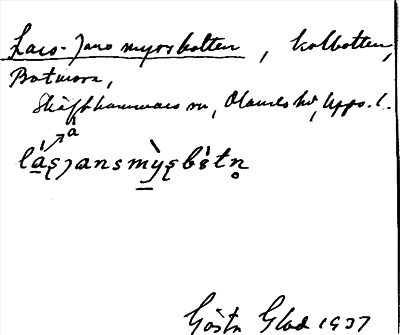 Lars-Jans myrsbotten, kolbotten,
Botmora,
Skäfthammars sn, Olands hd, Upps. l.
a
lásjansmỳsbótn
Gösta Glad 1937